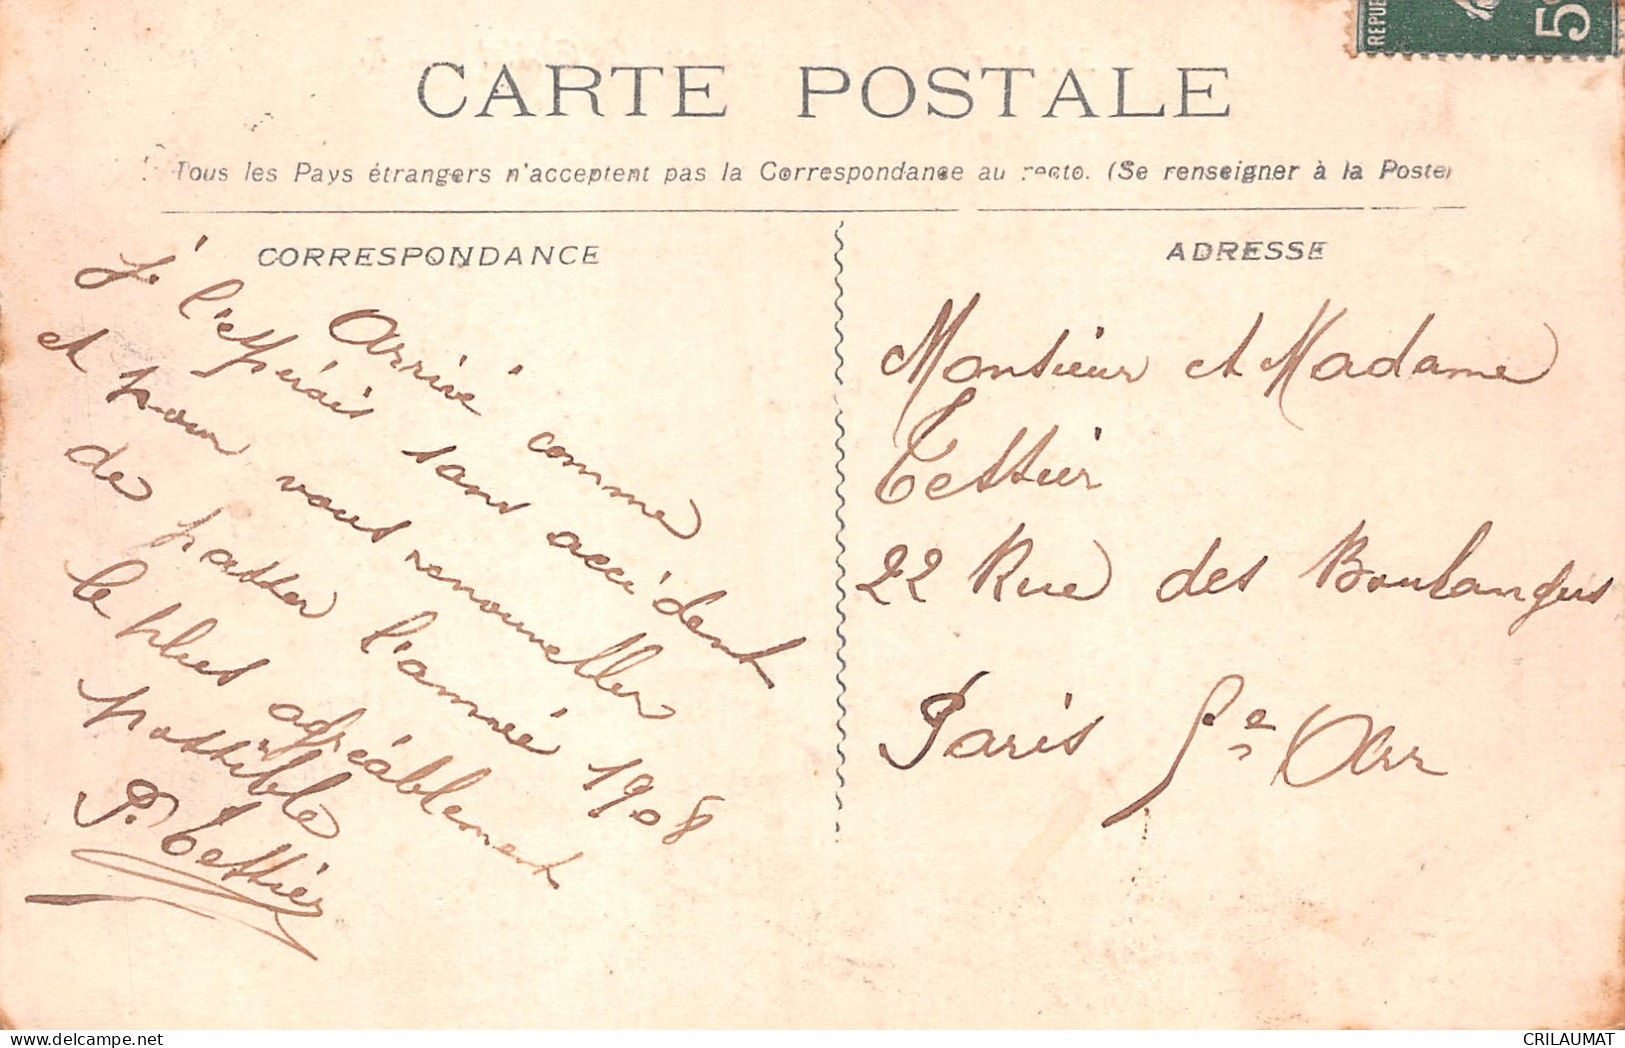 REPUB
5c
CARTE POSTALE
Tous les Pays étrangers n'acceptent pas la Correspondance au recto. (Se renseigner à la Poste)
CORRESPONDANCE
Arrivé comme
je l'espérais sans accident
et pour vous renouveller
de passer l'année 1908
le plus agréablement
possible
P. Tessier
ADRESSE
Monsieur et Madame
Tessier
22 Rue des Boulangers
Paris 5e Arr
CRILAUMAT